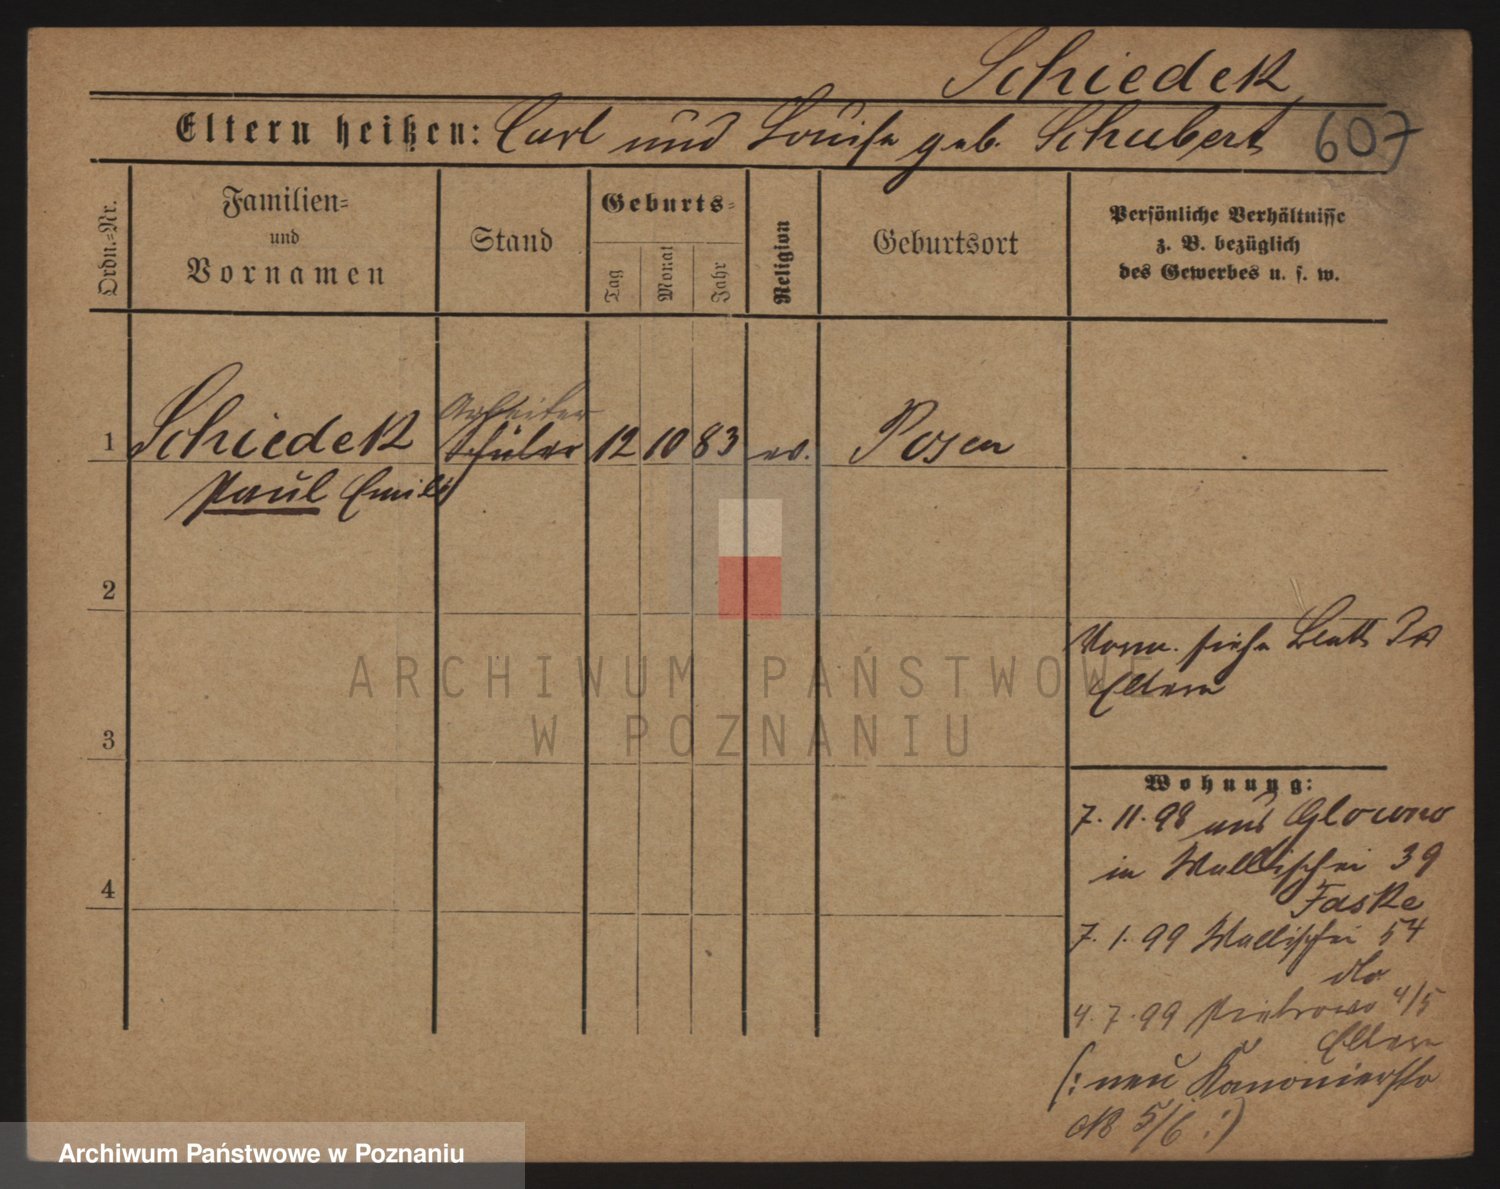 Schiedek
Eltern heißen: Carl und Louise geb. Schubert 607
Ordn.=Nr.
Familien=
und
Vornamen
Stand
Geburts=
Tag
Monat
Jahr
Religion
Geburtsort
Persönliche Verhältnisse
z. B. bezüglich
des Gewerbes u. s. w.
Arbeiter
1 Schiedek Schüler 12 10 83 ev. Posen
Paul Emil
2
Vorm. siehe Blatt
Eltern
3
Wohnung:
7. 11. 98 aus Glowno
in Wallischei 39
Faske
4
7. 1. 99 Wallischei 54
dto
4. 7. 99 Pietrowo 4/5
Eltern
(: neu Kanonierstr
No 5/6 :)
ARCHIWUM PAŃSTWOWE
W POZNANIU
Archiwum Państwowe w Poznaniu